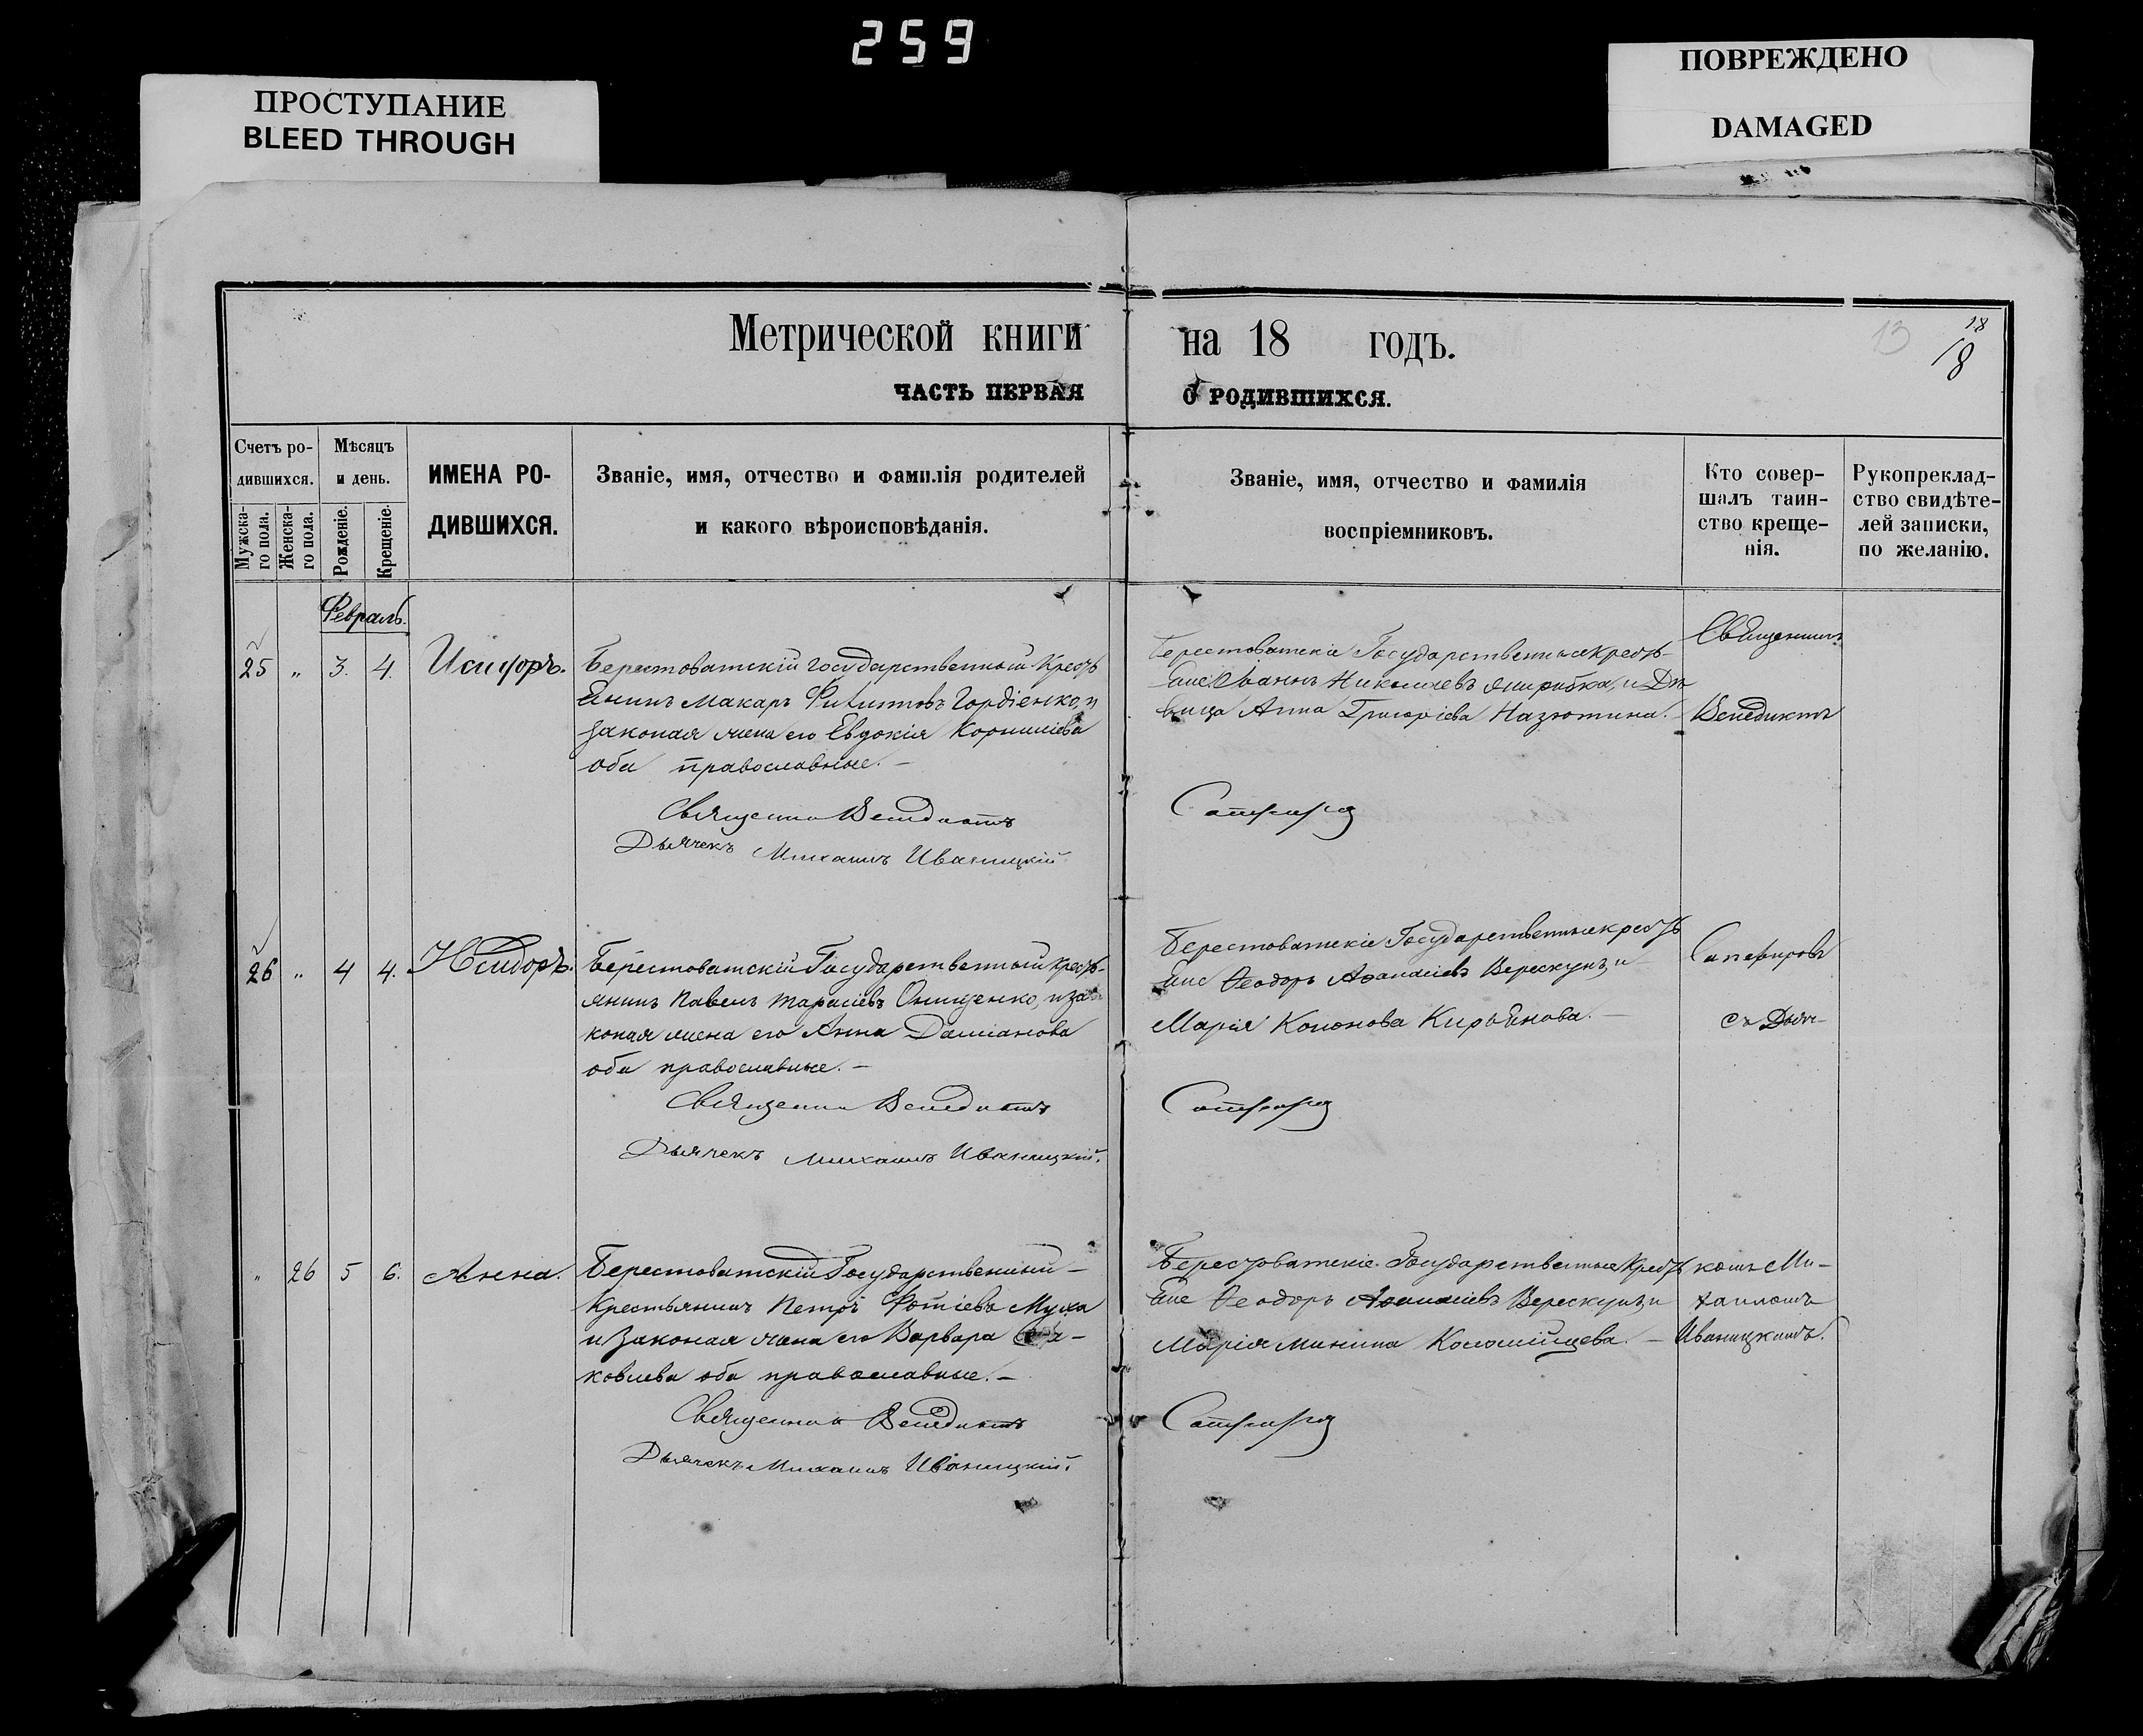 259
ПРОСТУПАНИЕ
BLEED THROUGH
ПОВРЕЖДЕНО
DAMAGED
Метрической книги на 18 годъ.
13
18
18
ЧАСТЬ ПЕРВАЯ О РОДИВШИХСЯ.
Счетъ ро-
дившихся.
Мужска-
го пола.
Женска-
го пола.
Мѣсяцъ
и день.
Рожденіе.
Крещеніе.
ИМЕНА РО-
ДИВШИХСЯ.
Званіе, имя, отчество и фамилія родителей
и какого вѣроисповѣданія.
Званіе, имя, отчество и фамилія
воспріемниковъ.
Кто совер-
шалъ таин-
ство креще-
нія.
Рукопреклад-
ство свидѣте-
лей записки,
по желанію.
Февраль.
25 " 3. 4. Исидоръ.
Берестоватскій государственный Кресть
янинъ Макаръ Филиповъ Гордіенко, и
законая жена его Евдокія Корниліева
оба православные. –
Священник Венедиктъ
Дьячекъ Михаилъ Иваницкій
Берестоватскіе Государственные кресть-
яне Иванъ Николаевъ и Дѣ
вица Анна Григоріева
Сапфиров
Священник
Венедиктъ
26 " 4 4. Исидоръ.
Берестоватскій Государственный кресть-
янинъ Павелъ Тарасіевъ Онищенко, и за
коная жена его Анна Даміанова
оба православные. –
Священник Венедиктъ
Дьячекъ Михаилъ Иваницкій.
Берестоватскіе Государственные кресть
яне Ѳеодоръ Аѳанасіевъ Верескунъ, и
Марія Кононова Кирьянова. –
Сапфиров
Сапфировъ
съ Дьяч-
" 26 5 6. Анна.
Берестоватскій Государственный –
Крестьянинъ Петръ Фотіевъ Муха
и законая жена его Варвара
ковлева оба православные. –
Священник Венедиктъ
Дьячекъ Михаилъ Иваницкій.
Берестоватскіе Государственные Кресть
яне Ѳеодоръ Аѳанасіевъ Верескунъ, и
Марія Минина Коломійцева. –
Сапфиров
комъ Ми-
хаиломъ
Иваницкимъ.